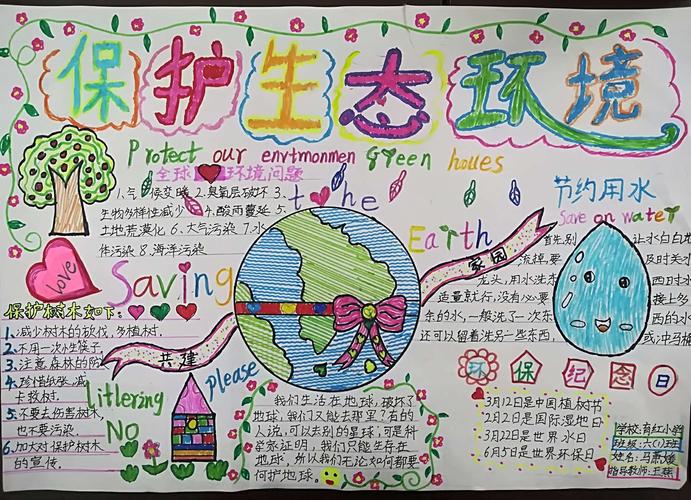 保护生态环境
Protect our envtmonmen Green houes
全球 环境问题
1.气候变暖 2.臭氧层破坏 3.
生物多样性减少 4.酸雨蔓延 5.
土地荒漠化 6.大气污染 7.水
体污染 8.海洋污染
the
Earth
Saving
love
家园
共建
节约用水
Save on water
首先,别让水白白地
流掉,要及时关水
龙头,用水洗东西时水
适量就行,没有必要接上多
余的水,一般洗了一次东西的水
还可以留着洗另一些东西,或冲马桶
保护树木如下:
1.减少树木的砍伐,多植树.
2.不用一次性筷子.
3.注意森林的防
4.珍惜纸张,减
卡救树.
5.不要去伤害树木,
也不要污染.
6.加大对保护树木
的宣传.
Litlering
NO
please
我们生活在地球,破坏了
地球,我们又能去哪里?有的
人说,可以去别的星球,可是科
学家证明,我们只能生存在
地球,所以我们无论如何都要
保护地球。
环保纪念日
3月12日是中国植树节
2月2日是国际湿地日
3月22日是世界水日
6月5日是世界环保日
学校:育红小学
班级:六(1)班
姓名:马萧
指导教师:王燕